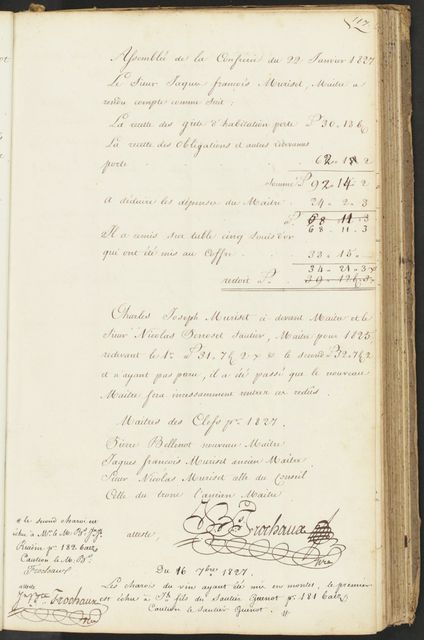 117
Assemblée de la Confrérie du 22 Janvier 1827
Le Sieur Jaques françois Murisel, Maitre a
rendu compte comme Suit:
La recette des gîte d'habitation porte P 30. 13 6
La recette des Obligations et autres redevances
porte . . . 62. 18 2
Somme P 92. 14. 2
A déduire les dépenses du Maitre . 24. 2. 3
P 68 11. 3
68 11. 3
Il a remis sur table cinq Louis d'or
qui ont été mis au Coffre . 33. 15.
34 21. 3
redoit P
Charles Joseph Muriset ci devant Maitre et le
Sieur Nicolas Sautier, Maitre pour 1825
redevant le 1er P 31, 7 6 2 & le second P 32. 7 6 2
et n'ayant pas paru, il a été passé que le nouveau
Maitre fera incessamment rentrer ces redûs.
Maitres des Clefs pr 1827.
Pierre Bellenot nouveau Maitre
Jaques françois Muriset ancien Maitre
Sieur Nicolas Muriset allé du Conseil
Celle du tronc l'ancien Maitre
atteste,
Trochaux
Nre
Du 16 7bre 1827.
Les charois du vin ayant été mis en montes, le premier
est échu à Jh fils du Sautier Quenot pr 181 batz
Caution le Sautier Quenot.
# le second charoi est
échu à Mr le M. Bx J. J.
pr 182 batz
Caution le M. Bx
Trochaux
atteste
Trochaux
Nre